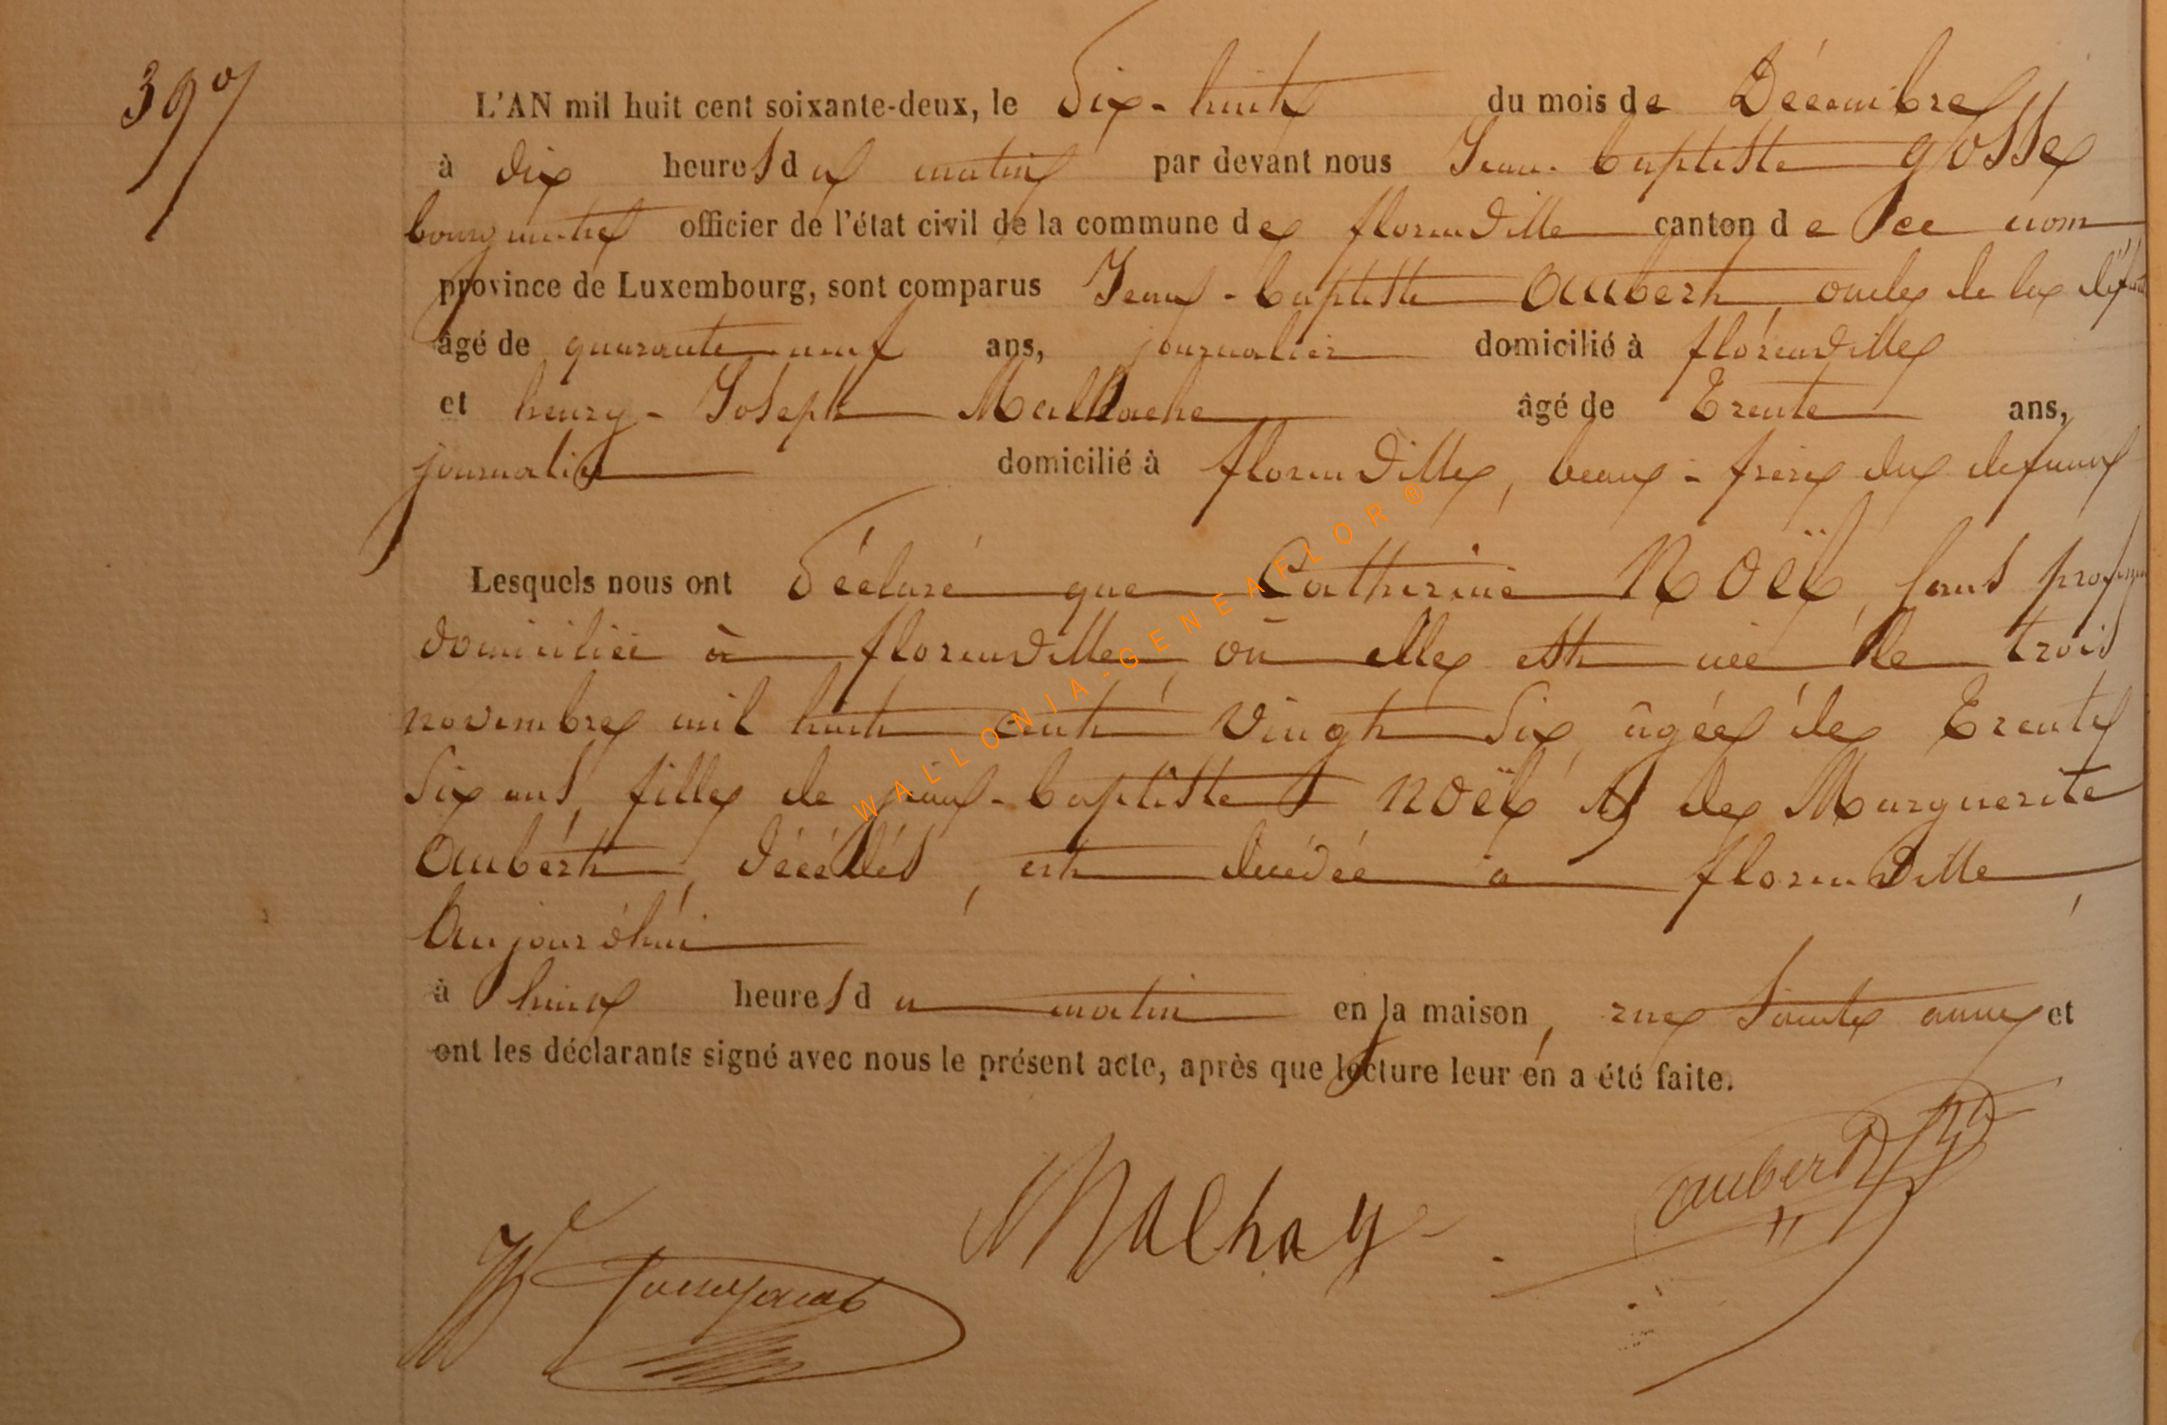 39
L'AN mil huit cent soixante-deux, le Dix-huit du mois de Décembre
à dix heures du matin par devant nous Jean-baptiste gosse
bourgmestre officier de l'état civil de la commune de florenville canton de ce nom
province de Luxembourg, sont comparus Jean-baptiste Aubert, oncle de la
âgé de quarante-neuf ans, journalier domicilié à florenville
et henry-Joseph âgé de Trente ans,
journalier domicilié à florenville, beau-frère du defunt
Lesquels nous ont Déclaré que Catherine NOËL, sans
domiciliée à florenville où elle est née le trois
novembre mil huit cent vingt six, âgée de Trente
Six ans, fille de jean-baptiste NOËL et de Marguerite
Aubert, décédés, est decédée à florenville
Aujourd'hui
à huit heures du matin en la maison, rue Sainte anne et
ont les déclarants signé avec nous le présent acte, après que lecture leur en a été faite.
aubert
Malhay
WALLONIA-GENEAFLOR®